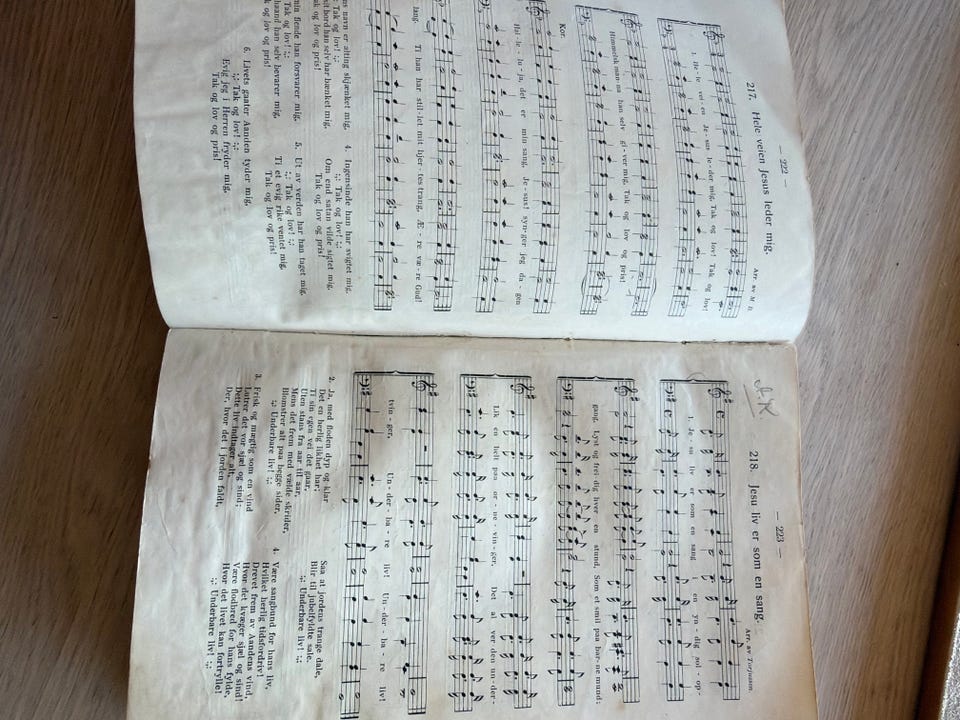 — 222 —
217. Hele veien Jesus leder mig.
Arr. av M. B.
1. He-le vei-en Je-sus le-der mig, Tak og lov! Tak og lov!
Himmelsk man-na han selv gi-ver mig, Tak og lov og pris!
Kor.
Hal-le-lu-ja, det er min sang, Je-sus! syn-ger jeg da-gen
lang. Ti han har stil-let mit hjer-tes trang, Æ-re væ-re Gud!
navn er alting skjænket mig,
Tak og lov! :;:
bord han selv har bænket mig,
og lov og pris!
min fiende han forsvarer mig,
Tak og lov! :;:
haand han selv bevarer mig,
og lov og pris!
4. Ingensinde han har svigtet mig,
:;: Tak og lov! :;:
Om end satan vilde sigtet mig,
Tak og lov og pris!
5. Ut av verden har han taget mig,
:;: Tak og lov! :;:
Ti et evig rike ventet mig,
Tak og lov og pris!
6. Livets gaater Aanden tyder mig,
:;: Tak og lov! :;:
Evig jeg i Herren fryder mig,
Tak og lov og pris!
— 223 —
218. Jesu liv er som en sang.
Arr. av Torjussen.
1. Je-su liv er som en sang i en yn-dig sol-op-
gang, Lyst og frei-dig hver en stund, Som et smil paa bar-ne mund;
Lik en lilje paa ør-ne-vin-ger, Det al ver-den under-
tvin-ger, Un-der-ba-re liv! Un-der-ba-re liv!
2. Ja, med floden dyp og klar
Det en herlig likhet har;
Ti sin egen vei det gaar,
Uten stans fra aar til aar,
Mens det frem med vælde skrider,
Blomstrer alt paa begge sider,
:;: Underbare liv! :;:
3. Frisk og mægtig som en vind
Lutrer det vor sjæl og sind;
Dette liv indtager alt,
Der, hvor det i jorden faldt,
Saa at jordens trange dale,
Blir til jubelfyldte sale,
:;: Underbare liv! :;:
4. Være sangbund for hans liv,
Hvilket herlig tidsfordriv!
Drevet frem av Aandens vind,
Hvor det kvæger sjæl og sind!
Være flodbred for hans fylde,
Hvor det livet kan fortrylle!
:;: Underbare liv! :;: